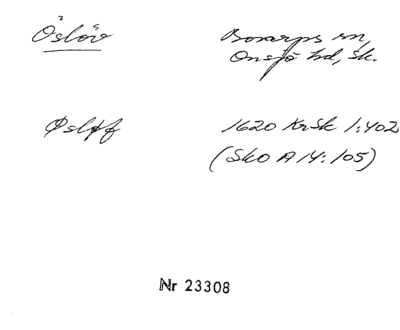 Öslöv Bosarps sn,
Onsjö hd, Sk.
Øsløf 1620 KrSk 1:402
(SkO A 14: 105)
Nr 23308